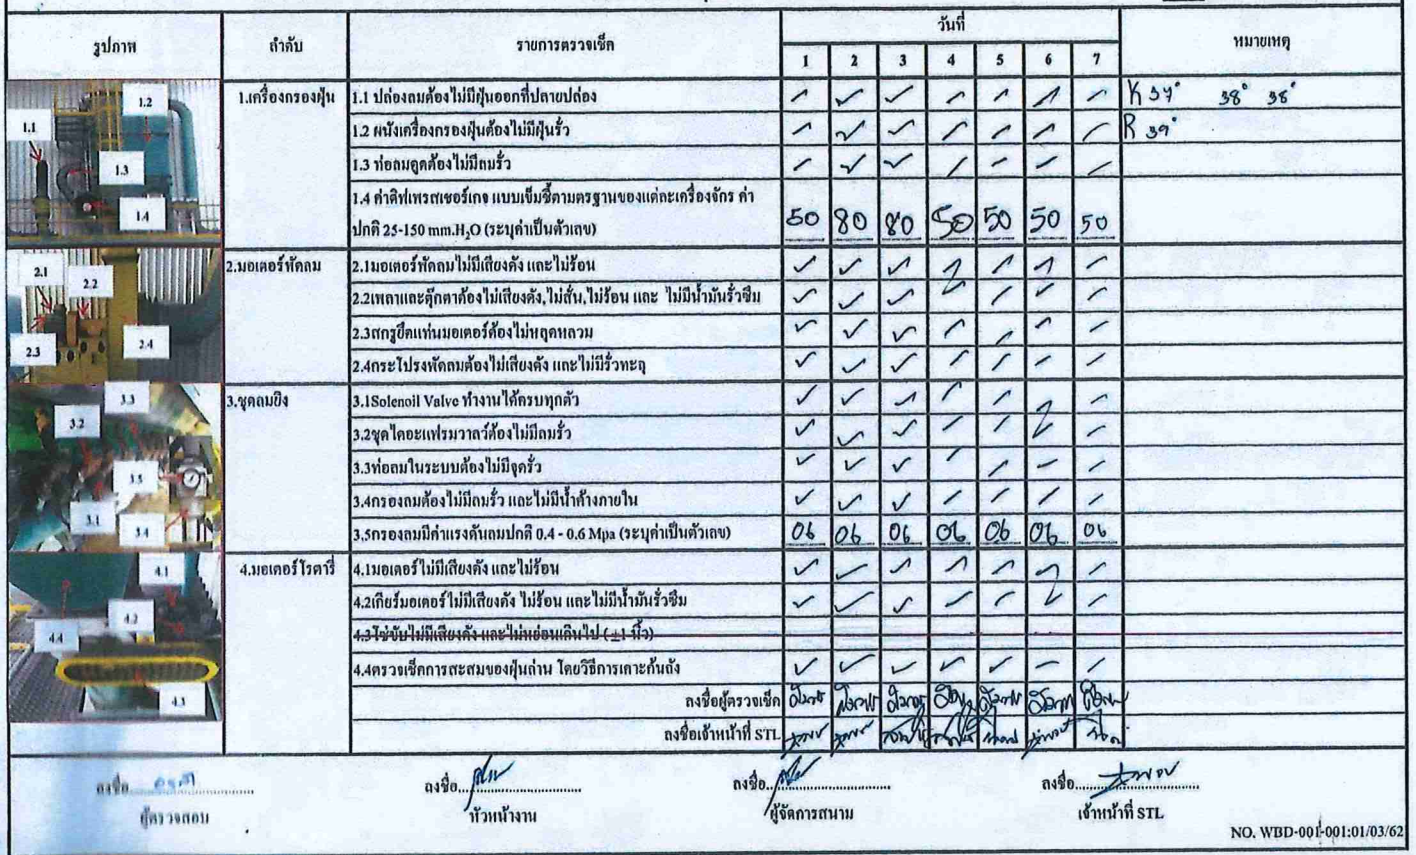 รูปภาพ ลำดับ รายการตรวจเช็ค วันที่ หมายเหตุ
1 2 3 4 5 6 7
1.1 1.2 1.3 1.4
1.เครื่องกรองฝุ่น 1.1 ปล่องลมต้องไม่มีฝุ่นออกที่ปลายปล่อง ✓ ✓ ✓ ✓ ✓ ✓ ✓ K 37° 38° 38°
1.2 ผนังเครื่องกรองฝุ่นต้องไม่มีฝุ่นรั่ว ✓ ✓ ✓ ✓ ✓ ✓ ✓ R 39°
1.3 ท่อลมดูดต้องไม่มีลมรั่ว ✓ ✓ ✓ ✓ ✓ ✓ ✓
1.4 ค่าดิฟเพรสเซอร์เกจ แบบเข็มชี้ตามตรฐานของแต่ละเครื่องจักร ค่า
ปกติ 25-150 mm.H₂O (ระบุค่าเป็นตัวเลข) 50 80 80 50 50 50 50
2.1 2.2 2.3 2.4
2.มอเตอร์พัดลม 2.1มอเตอร์พัดลมไม่มีเสียงดัง และไม่ร้อน ✓ ✓ ✓ ✓ ✓ ✓ ✓
2.2เพลาและตุ๊กตาต้องไม่เสียงดัง,ไม่สั่น,ไม่ร้อน และ ไม่มีน้ำมันรั่วซึม ✓ ✓ ✓ ✓ ✓ ✓ ✓
2.3สกรูยึดแท่นมอเตอร์ต้องไม่หลุดหลวม ✓ ✓ ✓ ✓ ✓ ✓ ✓
2.4กระโปรงพัดลมต้องไม่เสียงดัง และไม่มีรั่วทะลุ ✓ ✓ ✓ ✓ ✓ ✓ ✓
3.3 3.2 3.5 3.1 3.4
3.ชุดลมยิง 3.1Solenoil Valve ทำงานได้ครบทุกตัว ✓ ✓ ✓ ✓ ✓ ✓ ✓
3.2ชุดไดอะแฟรมวาลว์ต้องไม่มีลมรั่ว ✓ ✓ ✓ ✓ ✓ ✓ ✓
3.3ท่อลมในระบบต้องไม่มีจุดรั่ว ✓ ✓ ✓ ✓ ✓ ✓ ✓
3.4กรองลมต้องไม่มีลมรั่ว และไม่มีน้ำค้างภายใน ✓ ✓ ✓ ✓ ✓ ✓ ✓
3.5กรองลมมีค่าแรงดันลมปกติ 0.4 - 0.6 Mpa (ระบุค่าเป็นตัวเลข) 06 06 06 06 06 06 06
4.1 4.2 4.4 4.3
4.มอเตอร์โรตารี่ 4.1มอเตอร์ไม่มีเสียงดัง และไม่ร้อน ✓ ✓ ✓ ✓ ✓ ✓ ✓
4.2เกียร์มอเตอร์ไม่มีเสียงดัง ไม่ร้อน และไม่มีน้ำมันรั่วซึม ✓ ✓ ✓ ✓ ✓ ✓ ✓
4.3โซ่ขับไม่มีเสียงดัง และไม่หย่อนเกินไป (±1 นิ้ว)
4.4ตรวจเช็คการสะสมของฝุ่นถ่าน โดยวิธีการเคาะก้นถัง ✓ ✓ ✓ ✓ ✓ ✓ ✓
ลงชื่อผู้ตรวจเช็ค
ลงชื่อเจ้าหน้าที่ STL
ลงชื่อ ลงชื่อ ลงชื่อ ลงชื่อ
ผู้ตรวจสอบ หัวหน้างาน ผู้จัดการสนาม เจ้าหน้าที่ STL
NO. WBD-001-001:01/03/62